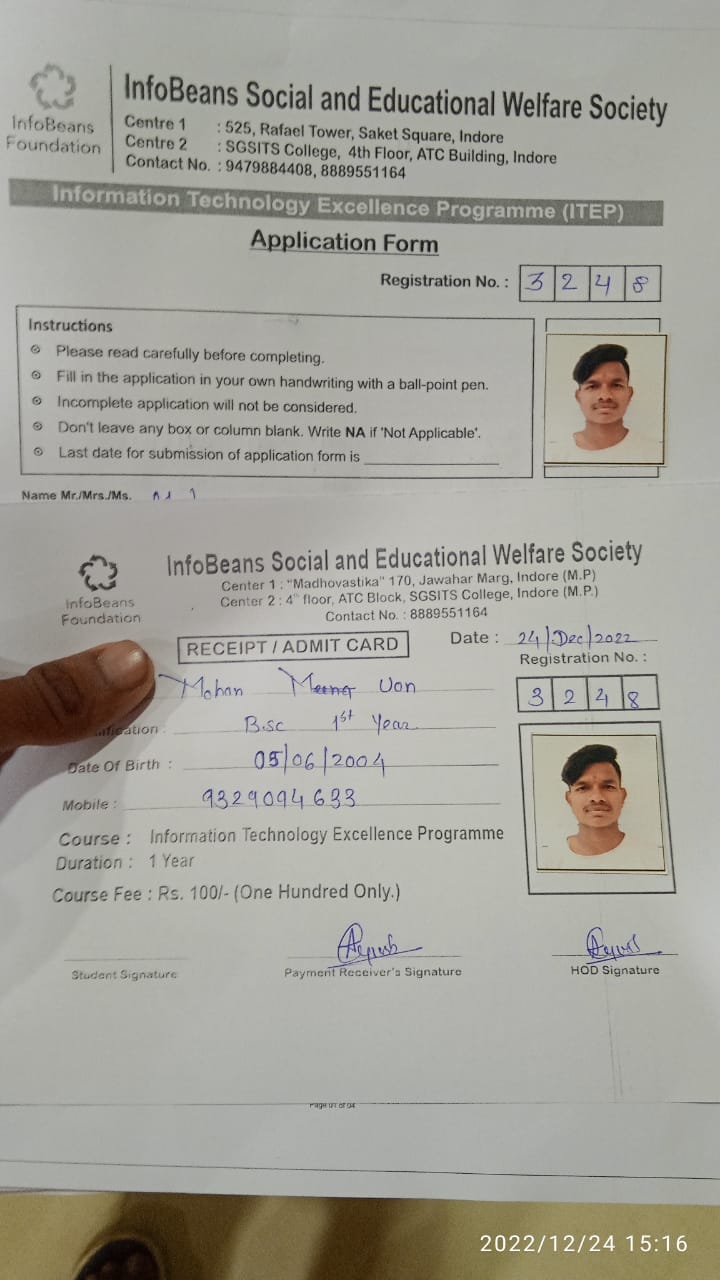 InfoBeans Social and Educational Welfare Society
InfoBeans
Foundation
Centre 1 : 525, Rafael Tower, Saket Square, Indore
Centre 2 : SGSITS College, 4th Floor, ATC Building, Indore
Contact No. : 9479884408, 8889551164
Information Technology Excellence Programme (ITEP)
Application Form
Registration No. : 3 2 4 8
Instructions
Please read carefully before completing.
Fill in the application in your own handwriting with a ball-point pen.
Incomplete application will not be considered.
Don't leave any box or column blank. Write NA if 'Not Applicable'.
Last date for submission of application form is
Name Mr./Mrs./Ms.
InfoBeans Social and Educational Welfare Society
InfoBeans
Foundation
Center 1 : "Madhovastika" 170, Jawahar Marg, Indore (M.P)
Center 2 : 4th floor, ATC Block, SGSITS College, Indore (M.P.)
Contact No. : 8889551164
RECEIPT / ADMIT CARD
Date : 24/Dec/2022
Registration No. :
3 2 4 8
Mohan Uon
B.sc 1st Year
Date Of Birth : 05/06/2004
Mobile : 9329094633
Course : Information Technology Excellence Programme
Duration : 1 Year
Course Fee : Rs. 100/- (One Hundred Only.)
Student Signature
Payment Receiver's Signature
HOD Signature
Page 01 of 04
2022/12/24 15:16